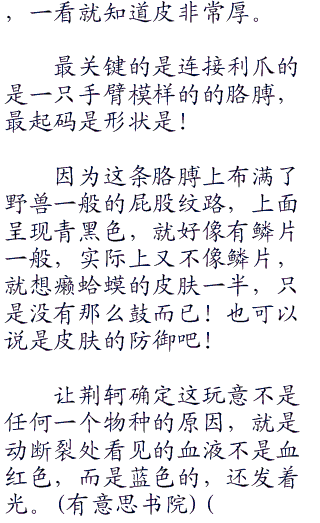 ，一看就知道皮非常厚。
最关键的是连接利爪的
是一只手臂模样的的胳膊，
最起码是形状是！
因为这条胳膊上布满了
野兽一般的屁股纹路，上面
呈现青黑色，就好像有鳞片
一般，实际上又不像鳞片，
就想癞蛤蟆的皮肤一半，只
是没有那么鼓而已！也可以
说是皮肤的防御吧！
让荆轲确定这玩意不是
任何一个物种的原因，就是
动断裂处看见的血液不是血
红色，而是蓝色的，还发着
光。(有意思书院) (